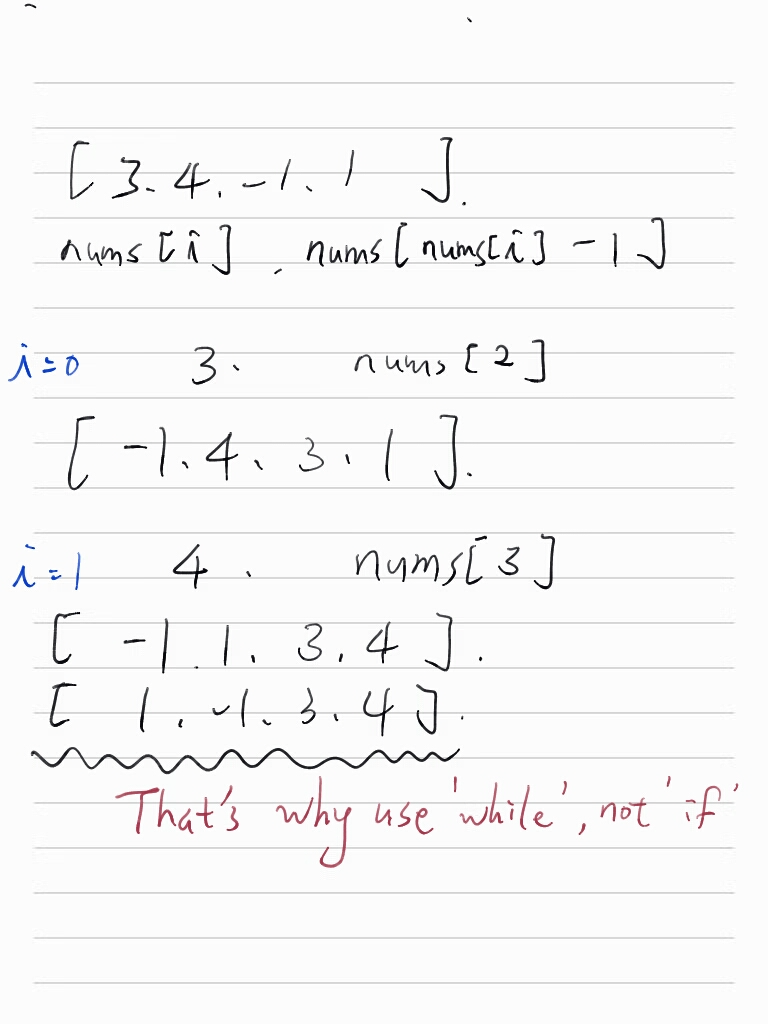 [ 3. 4. -1. 1 ].
nums[i] . nums[nums[i] - 1]
i=0 3. nums[2]
[ -1. 4. 3. 1 ].
i=1 4. nums[3]
[ -1. 1. 3. 4 ].
[ 1. -1. 3. 4 ].
That's why use 'while', not 'if'